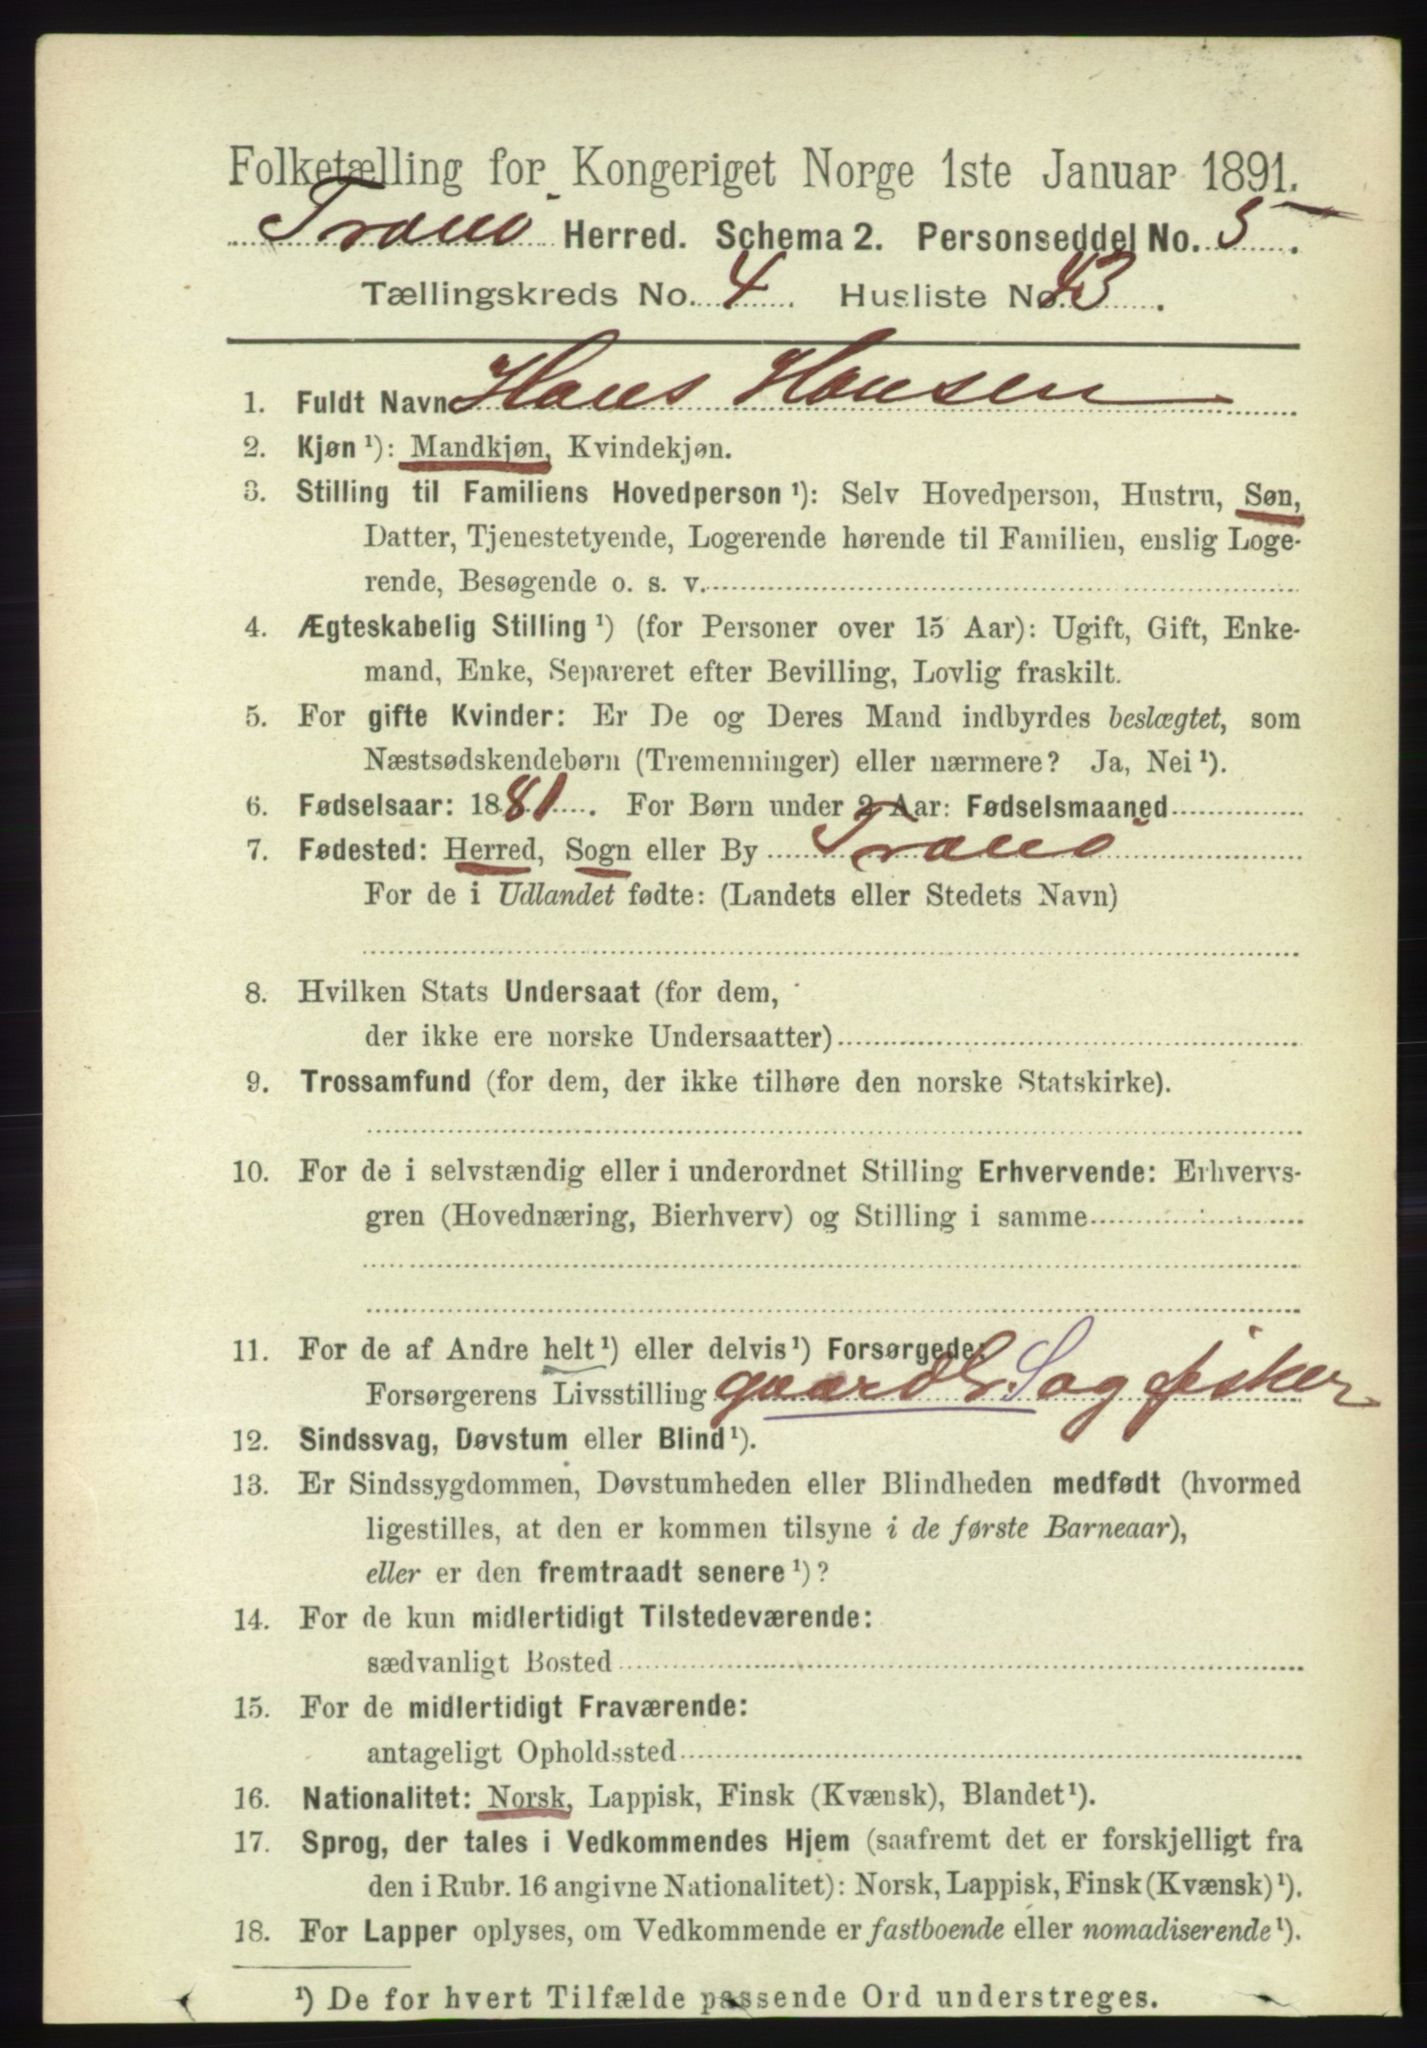 Folketælling for Kongeriget Norge 1ste Januar 1891.
Tranö Herred. Schema 2. Personseddel No. 5.
Tællingskreds No. 4. Husliste No. 43.
1. Fuldt Navn Hans Hansen
2. Kjøn ¹): Mandkjøn, Kvindekjøn.
3. Stilling til Familiens Hovedperson ¹): Selv Hovedperson, Hustru, Søn,
Datter, Tjenestetyende, Logerende hørende til Familien, enslig Loge-
rende, Besøgende o. s. v.
4. Ægteskabelig Stilling ¹) (for Personer over 15 Aar): Ugift, Gift, Enke-
mand, Enke, Separeret efter Bevilling, Lovlig fraskilt.
5. For gifte Kvinder: Er De og Deres Mand indbyrdes beslægtet, som
Næstsødskendebørn (Tremenninger) eller nærmere? Ja, Nei ¹).
6. Fødselsaar: 1881. For Børn under 2 Aar: Fødselsmaaned
7. Fødested: Herred, Sogn eller By Tranö
For de i Udlandet fødte: (Landets eller Stedets Navn)
8. Hvilken Stats Undersaat (for dem,
der ikke ere norske Undersaatter)
9. Trossamfund (for dem, der ikke tilhøre den norske Statskirke).
10. For de i selvstændig eller i underordnet Stilling Erhvervende: Erhvervs-
gren (Hovednæring, Bierhverv) og Stilling i samme
11. For de af Andre helt ¹) eller delvis ¹) Forsørgede:
Forsørgerens Livsstilling gaardb. S og fisker
12. Sindssvag, Døvstum eller Blind ¹).
13. Er Sindssygdommen, Døvstumheden eller Blindheden medfødt (hvormed
ligestilles, at den er kommen tilsyne i de første Barneaar),
eller er den fremtraadt senere ¹)?
14. For de kun midlertidigt Tilstedeværende:
sædvanligt Bosted
15. For de midlertidigt Fraværende:
antageligt Opholdssted
16. Nationalitet: Norsk, Lappisk, Finsk (Kvænsk), Blandet ¹).
17. Sprog, der tales i Vedkommendes Hjem (saafremt det er forskjelligt fra
den i Rubr. 16 angivne Nationalitet): Norsk, Lappisk, Finsk (Kvænsk) ¹).
18. For Lapper oplyses, om Vedkommende er fastboende eller nomadiserende ¹).
¹) De for hvert Tilfælde passende Ord understreges.